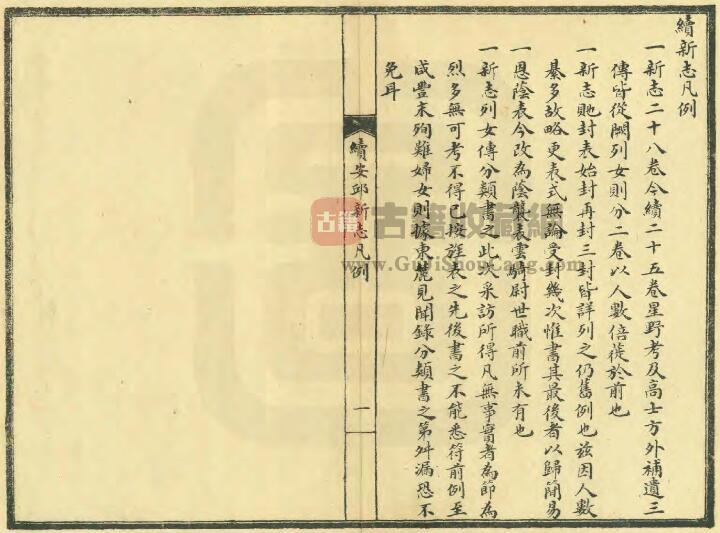 續新志凡例
一新志二十八卷今續二十五卷星野考及高士方外補遺三
傳皆從闕列女則分二卷以人數倍蓰於前也
一新志貤封表始封再封三封皆詳列之仍舊例也茲因人數
綦多故略更表式無論受封幾次惟書其最後者以歸簡易
一恩蔭表今改為蔭襲表雲騎尉世職前所未有也
一新志列女傳分類書之此次采訪所得凡無事實者為節為
烈多無可考不得已按旌表之先後書之不能悉符前例至
咸豐末殉難婦女則據東麓見聞錄分類書之第舛漏恐不
免耳
續安邱新志凡例
一
古籍
古籍收藏網
www.GuJiShouCang.com